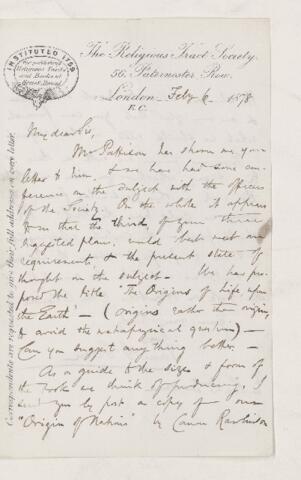 INSTITUTED 1799
For publishing
Religious Tracts
and Books at
Home & Abroad
The Religious Tract Society.
56, Paternoster Row,
London Feby 6 1878
E.C.
My dear Sir,
Mr Pattison has shown me your
letter to him, & we have had some con-
ference on the subject with the officers
of the Society. On the whole it appears
to us that the third, of your three
suggested plans, would best meet our
requirements & the present state of
thought on the subject. We has pro-
posed the title "The Origins of Life upon
the Earth" — (origins rather than origin,
to avoid the metaphysical question) —
Can you suggest anything better. —
As a guide to the size & form of
the books we think of producing, I
send you by post a copy of our
"Origin of Nations" by Canon Rawlinson
Correspondents are requested to give their full address on every letter.